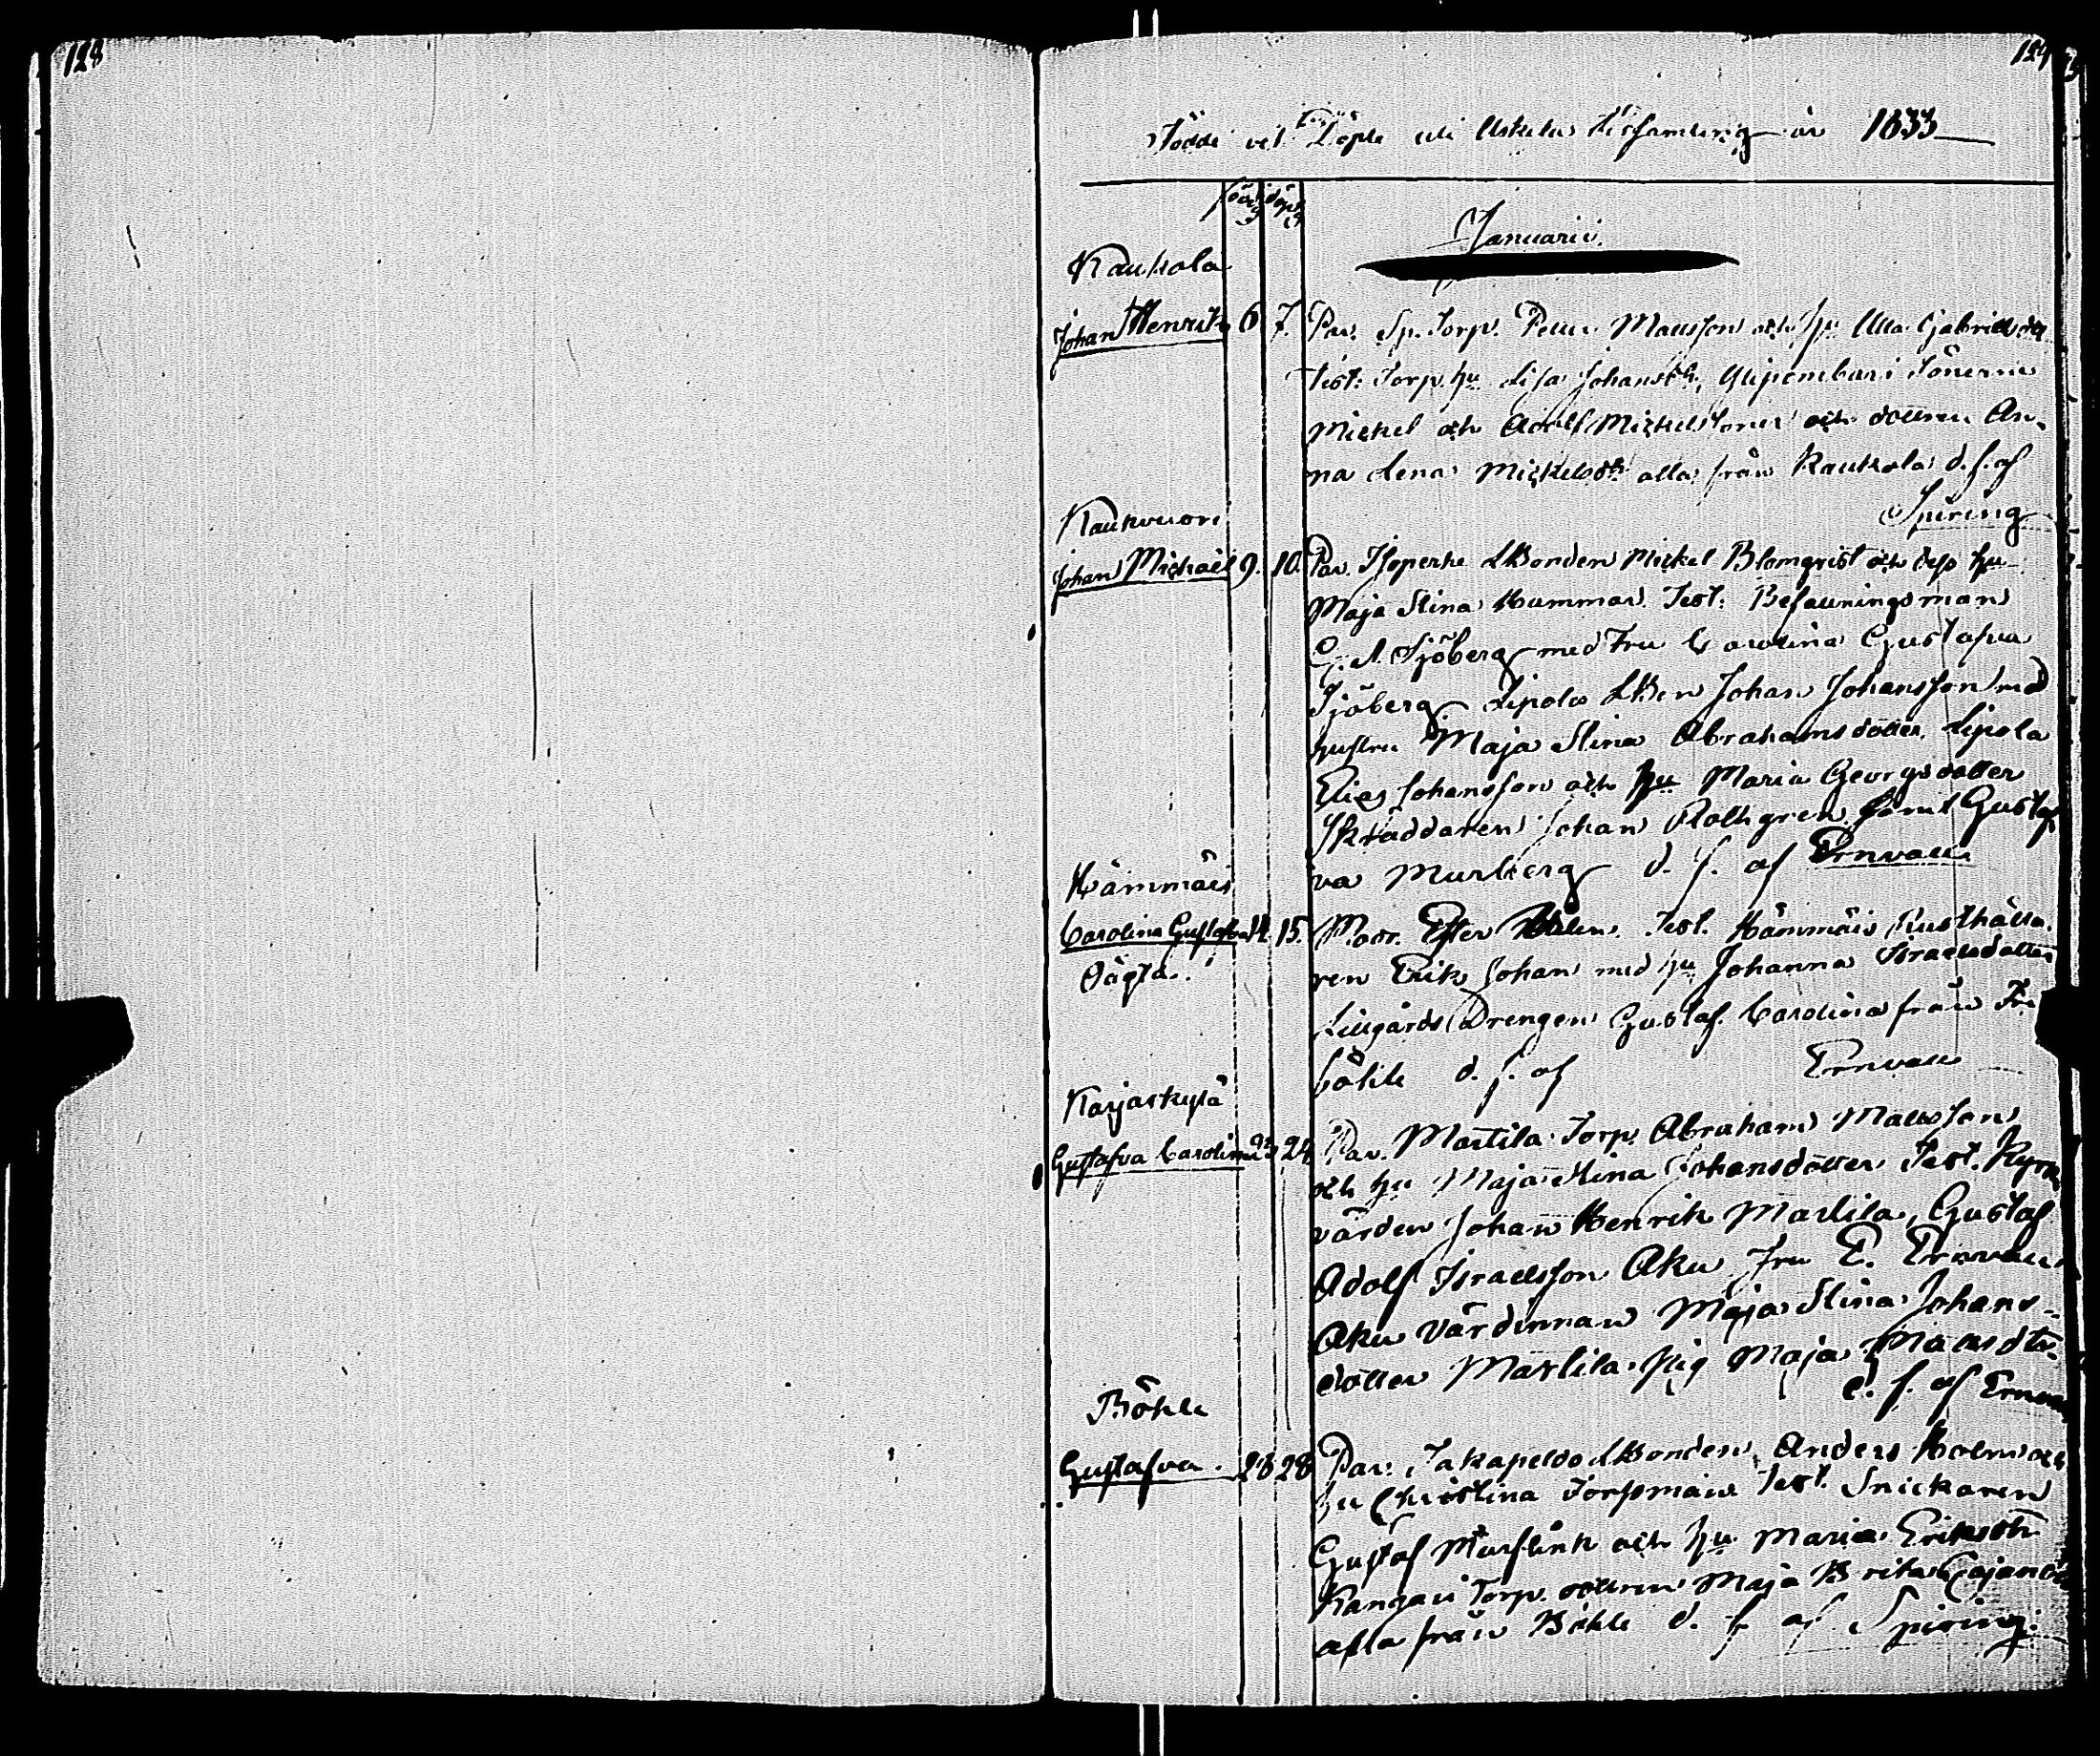 128
129
Födde och Döpte uti Askula församling år 1833
född döpt
Januarii.
Raukola
Johan Henrik 6. 7. Par. Sp. Torp. Petter Mattsson och hu Ulla Gabrielsdr
Test: Torp. hu Lisa Johansdtr, sönerne
Mickel och Adolf Mickelssoner och dottren An-
na Lena Mickelsdtr alla från Raukola d. f. af
Spiring
Raukvuori
Johan Michaël 9. 10. Par. LBonden Mickel Blomqvist och dess hu
Maja Stina Hammar. Test: Befallningsman
G. A. Sjöberg med Fru Carolina Gustafva
Sjöberg. Lipola LBon Johan Johansson med
hustru Maja Stina Abrahamsdotter, Lipola
Elias Johansson och hu Maria Georgsdotter
Skräddaren Johan Rothgren samt Gustaf
va Murberg d. f. af Ernvall
Hämmäis
Carolina Gustafva 14. 15. Mod. Ester Test. Hämmäis Rusthålla-
Oägta. ren Erik Johan med hu Johanna Israelsdotter
Lillgårds Drengen Gustaf. Carolina från
böhle d. f. af Ernvall
Karjaskylä
Gustafva Carolina 23 24 Par. Martila Torp. Abraham Mattsson
och hu Maja Stina Johansdotter Test. Kyrk
värden Johan Henrik Martila, Gustaf
Adolf Israelsson Aku Fru E. Ernvall
Aku Värdinnan Maja Stina Johans-
dotter Martila pig Maja Matsdtr
d. f. af Ernvall
Böhle
Gustafva. 28 28 Par. Jakapeldo LBonden Anders Holm och
hu Christina Torpman Test. Snickaren
Gustaf Murslink och hu Maria Eriksdtr
Kangas Torp. dottren Maja Brita Cajansdtr
alla från Böhle d. f. af Spiring.